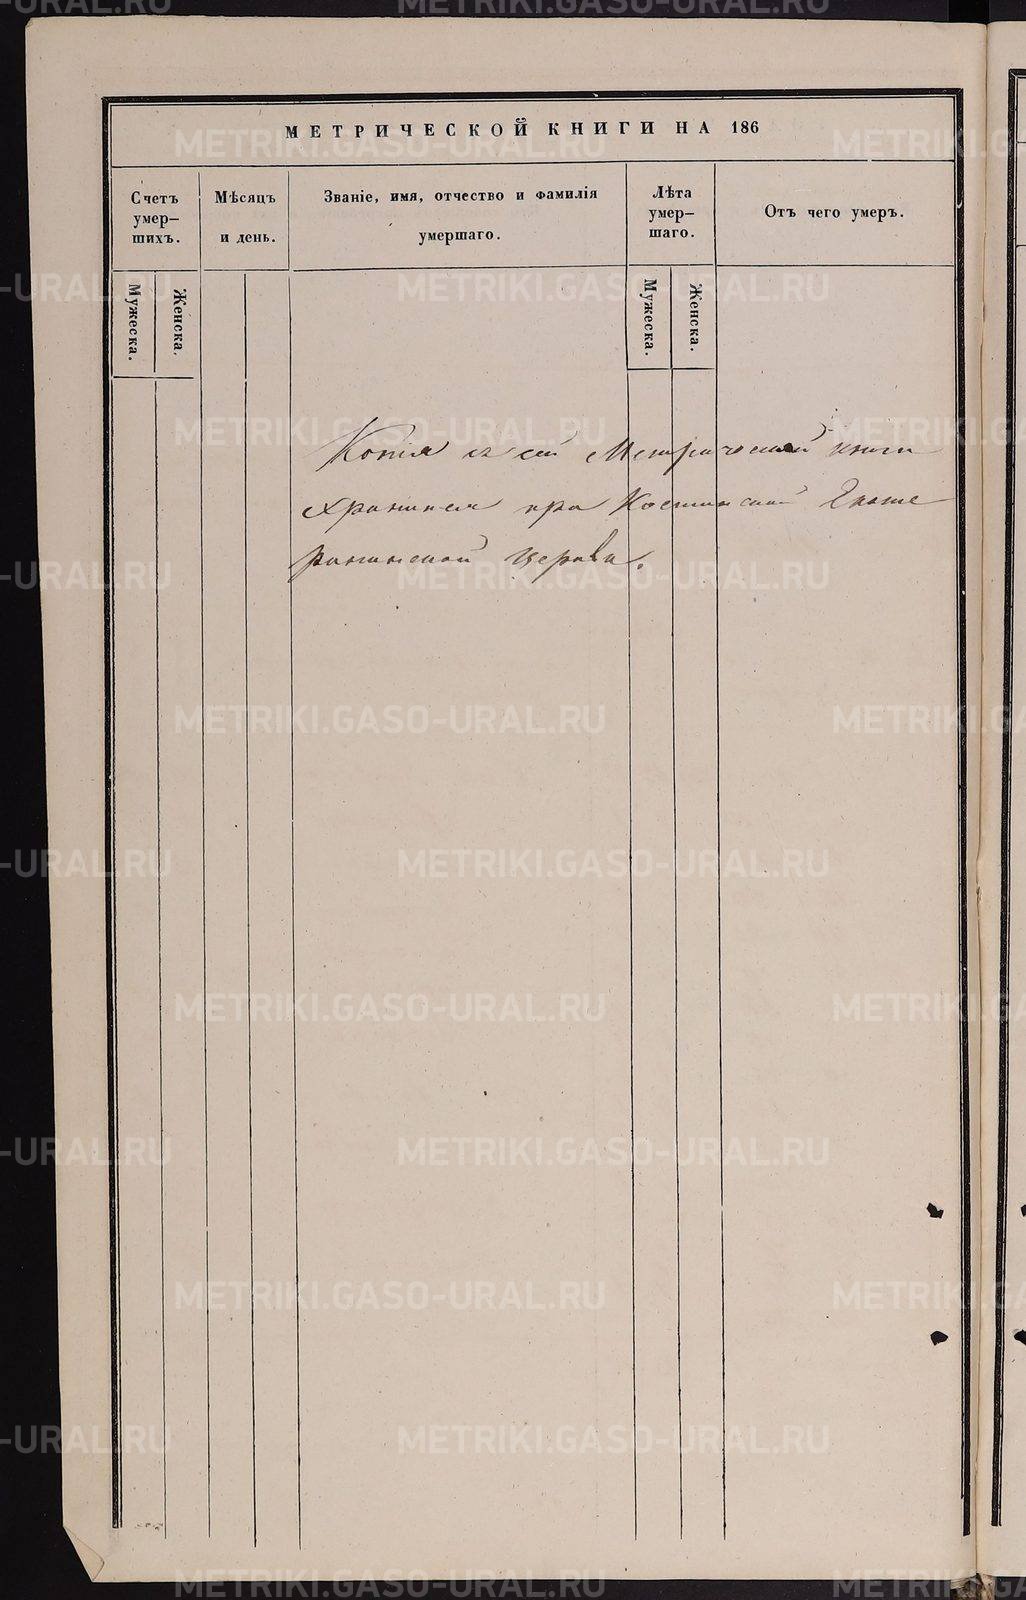 МЕТРИЧЕСКОЙ КНИГИ НА 186
Счетъ
умер-
шихъ.
Мѣсяцъ
и день.
Званіе, имя, отчество и фамилія
умершаго.
Лѣта
умер-
шаго.
Отъ чего умеръ.
Мужеска.
Женска.
Мужеска.
Женска.
Копія съ сей Метрической книги
хранится при Костинской Екате
рининской церкви.
METRIKI.GASO-URAL.RU